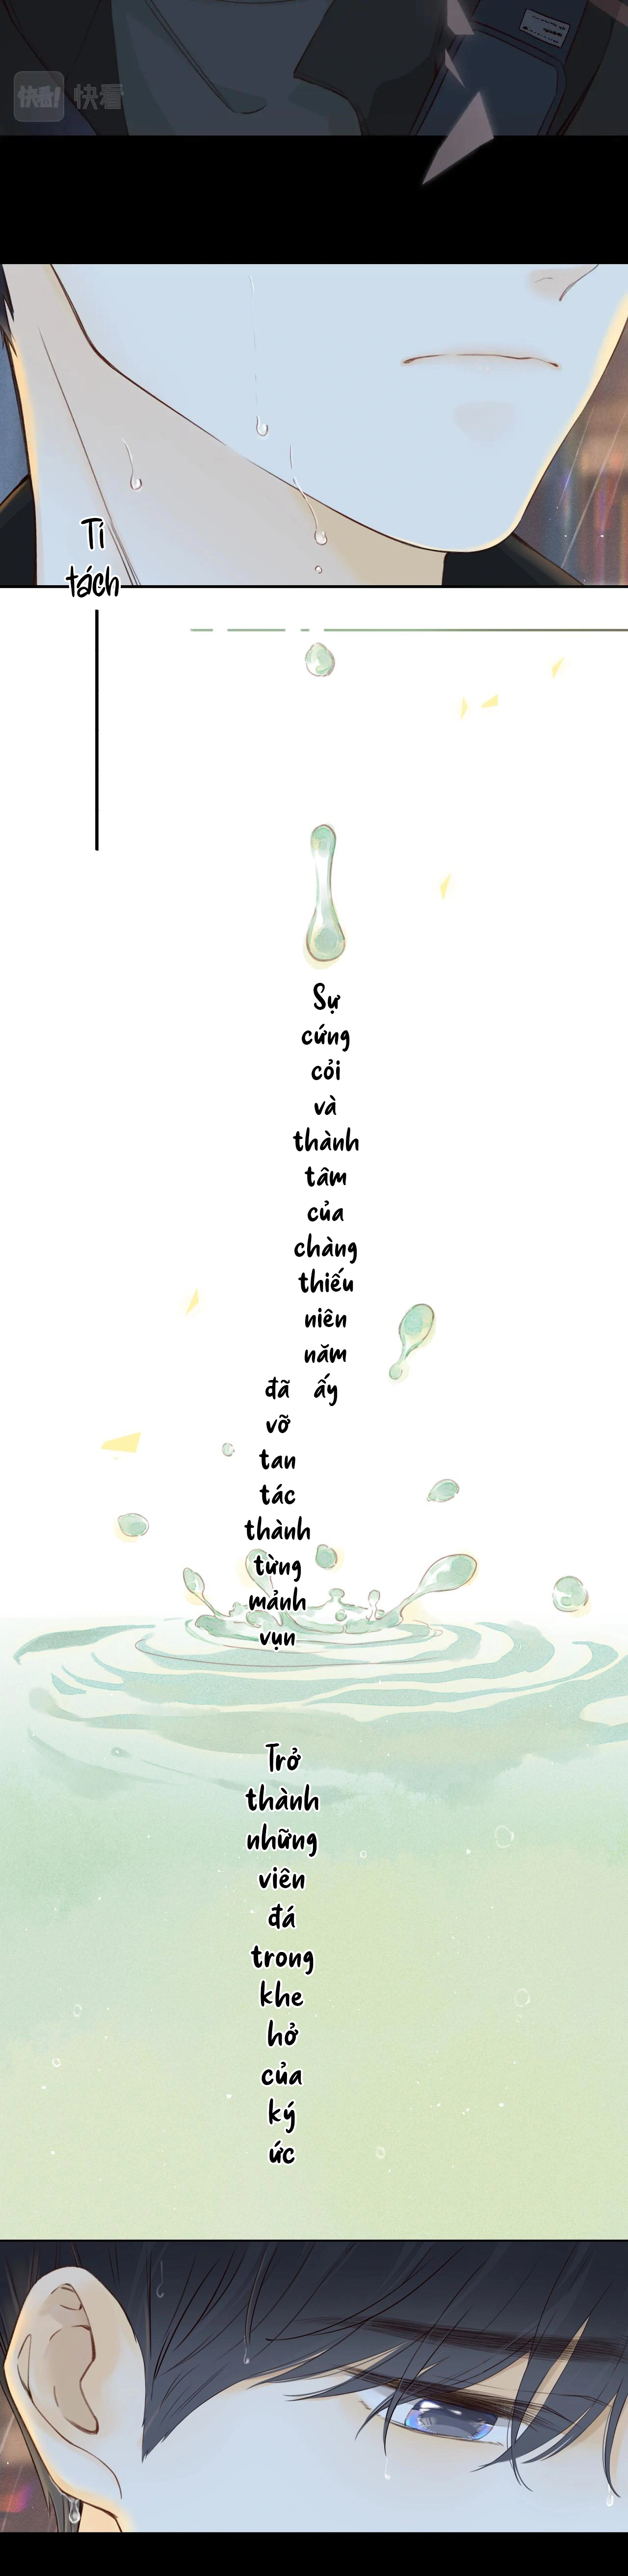 快看! 快看
Tí
tách
Sự
cứng
cỏi
và
thành
tâm
của
chàng
thiếu
niên
năm
ấy
đã
vỡ
tan
tác
thành
từng
mảnh
vụn
Trở
thành
những
viên
đá
trong
khe
hở
của
ký
ức